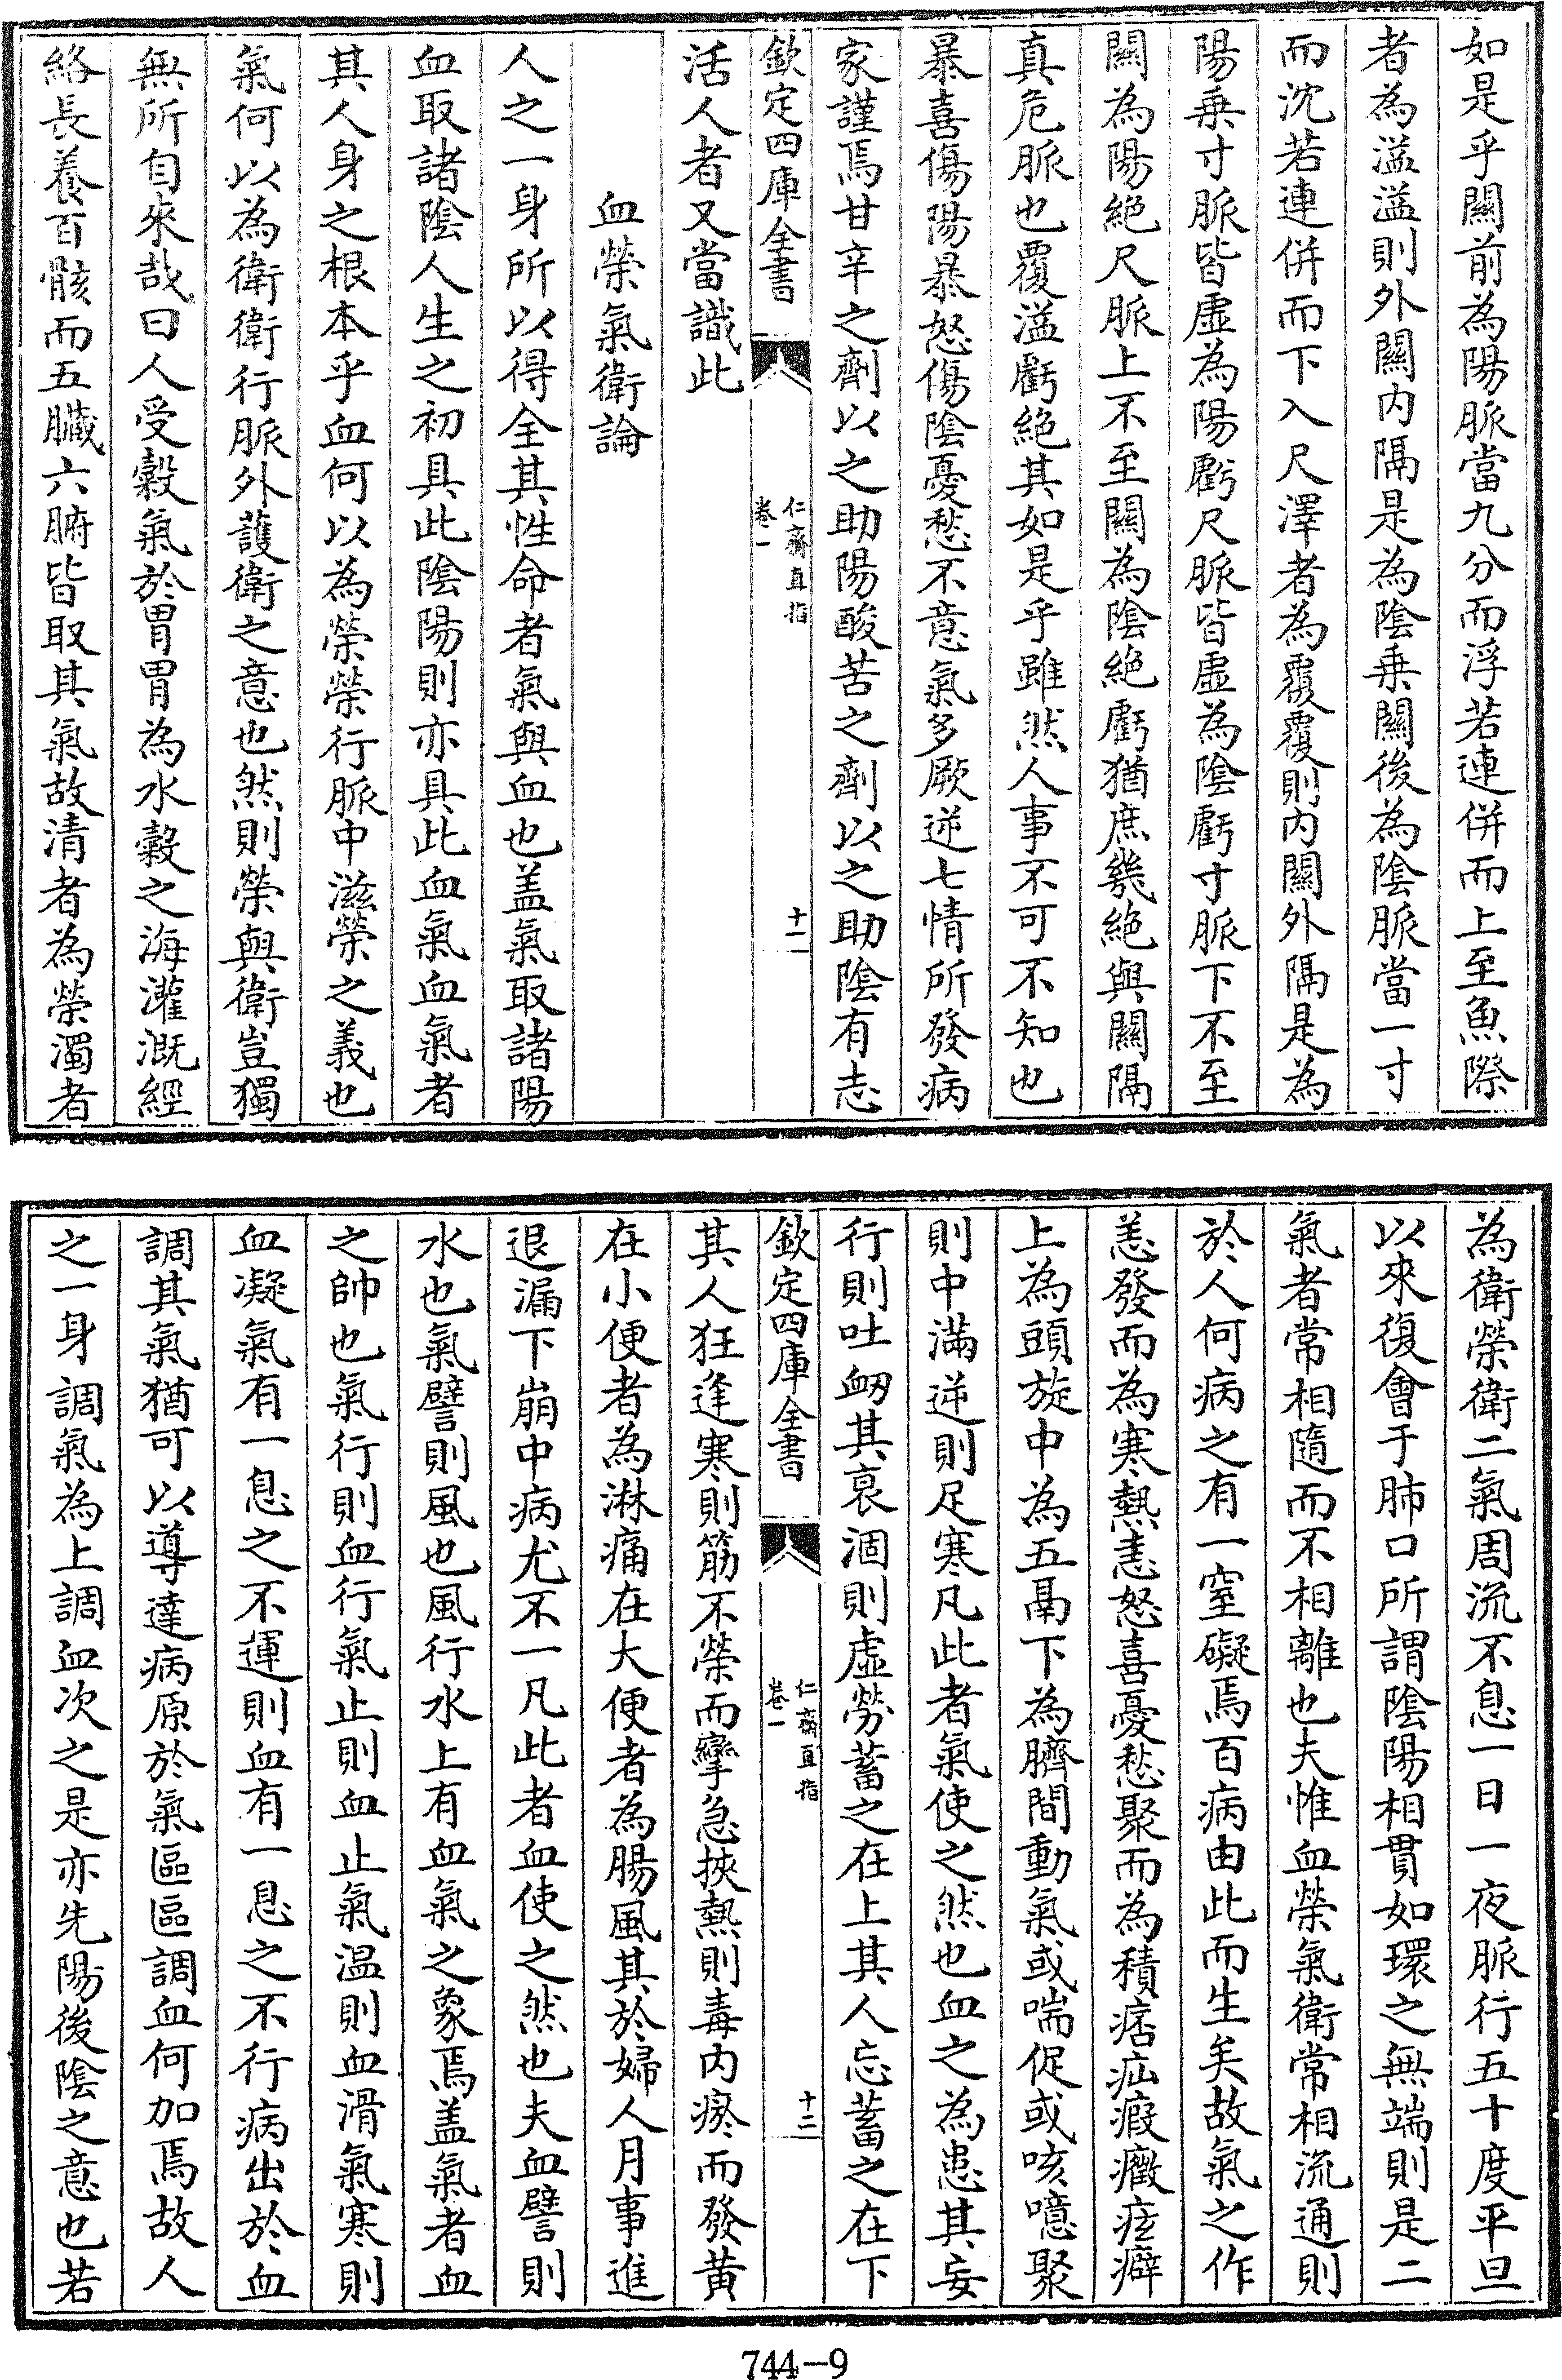 如是乎關前為陽脈當九分而浮若連併而上至魚際
者為溢溢則外關内隔是為陰乗關後為陰脈當一寸
而沈若連併而下入尺澤者為覆覆則内關外隔是為
陽乗寸脈皆虛為陽虧尺脈皆虛為陰虧寸脈下不至
關為陽絕尺脈上不至關為陰絕虧猶庶幾絕與關隔
真危脈也覆溢虧絕其如是乎雖然人事不可不知也
暴喜傷陽暴怒傷陰憂愁不意氣多厥逆七情所發病
家謹焉甘辛之劑以之助陽酸苦之劑以之助陰有志
欽定四庫全書
仁齋直指
卷一
十一
活人者又當識此
血榮氣衛論
人之一身所以得全其性命者氣與血也盖氣取諸陽
血取諸陰人生之初具此陰陽則亦具此血氣血氣者
其人身之根本乎血何以為榮榮行脈中滋榮之義也
氣何以為衛衛行脈外護衛之意也然則榮與衛豈獨
無所自來哉曰人受穀氣於胃胃為水穀之海灌溉經
絡長養百骸而五臟六腑皆取其氣故清者為榮濁者
為衛榮衛二氣周流不息一日一夜脈行五十度平旦
以來復會于肺口所謂陰陽相貫如環之無端則是二
氣者常相隨而不相離也夫惟血榮氣衛常相流通則
於人何病之有一窒礙焉百病由此而生矣故氣之作
恙發而為寒熱恚怒喜憂愁聚而為積痞疝瘕癥痃癖
上為頭旋中為五鬲下為臍間動氣或喘促或咳噫聚
則中滿逆則足寒凡此者氣使之然也血之為患其妄
行則吐衂其衰涸則虛勞蓄之在上其人忘蓄之在下
欽定四庫全書
仁齋直指
卷一
十二
其人狂逢寒則筋不榮而攣急挾熱則毒内瘀而發黃
在小便者為淋痛在大便者為腸風其於婦人月事進
退漏下崩中病尤不一凡此者血使之然也夫血譬則
水也氣譬則風也風行水上有血氣之象焉盖氣者血
之帥也氣行則血行氣止則血止氣温則血滑氣寒則
血凝氣有一息之不運則血有一息之不行病出於血
調其氣猶可以導達病原於氣區區調血何加焉故人
之一身調氣為上調血次之是亦先陽後陰之意也若
744-9